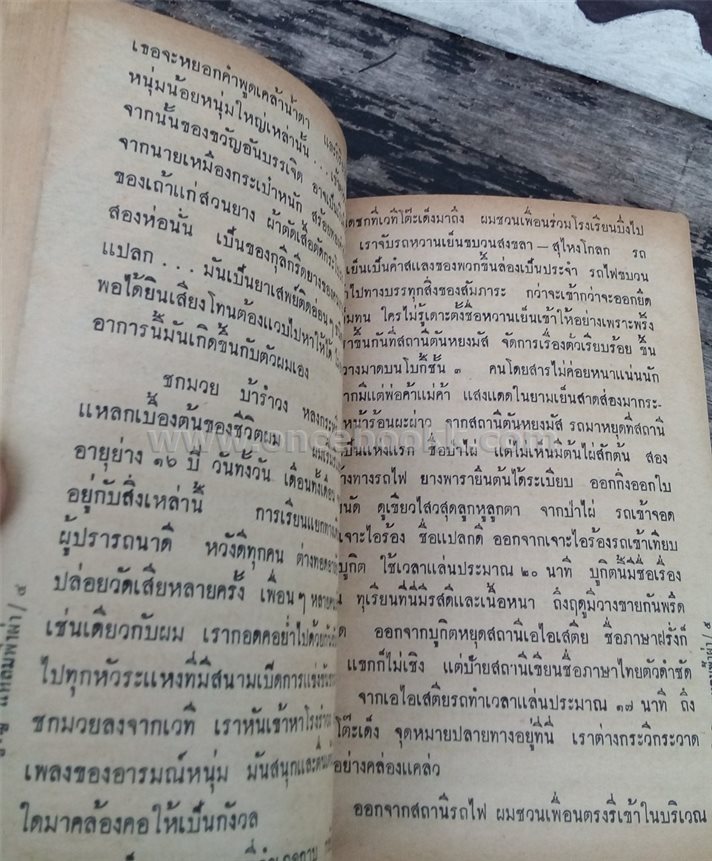 เธอจะหยอกคำพูดเคล้าน้ำตา
หนุ่มน้อยหนุ่มใหญ่เหล่านั้น . . .
จากนั้นของขวัญอันบรรเจิด อาจเป็น
จากนายเหมืองกระเป๋าหนัก สร้อย
ของเถ้าแก่สวนยาง ผ้าตัดเสื้อตัด
สองห่อนั้น เป็นของกุลีกรีดยาง
แปลก . . . มันเป็นยาเสพย์ติดอ่อน ๆ
พอได้ยินเสียงโทนต้องแวบไปหาให้ได้
อาการนี้มันเกิดขึ้นกับตัวผมเอง
ชกมวย บ้ารำวง หลง
แหลกเบื้องต้นของชีวิตผม ผม
อายุย่าง ๑๖ ปี วันทั้งวัน เดือนทั้งเดือน
อยู่กับสิ่งเหล่านี้ การเรียนแยกทาง
ผู้ปรารถนาดี หวังดีทุกคน ต่าง
ปล่อยวัดเสียหลายครั้ง เพื่อน ๆ
เช่นเดียวกับผม เรากอดคอย่ำไปด้วยกัน
ไปทุกหัวระแหงที่มีสนามเปิดการแข่งขัน
ชกมวยลงจากเวที เราหันเข้าหาโรง
เพลงของอารมณ์หนุ่ม มันสนุกและ
ใดมาคล้องคอให้เป็นกังวล
แหลมพาผ่า / ๔
ชกที่เวทีโต๊ะเด็งมาถึง ผมชวนเพื่อนร่วมโรงเรียนบึ่งไป
เราจับรถหวานเย็นขบวนสงขลา — สุไหงโกลก รถ
เย็นเป็นคำสแลงของพวกขึ้นล่องเป็นประจำ รถไฟขบวน
ไปทางบรรทุกสิ่งของสัมภาระ กว่าจะเข้ากว่าจะออกยืด
ทน ใครไม่รู้เดาะตั้งชื่อหวานเย็นเข้าให้อย่างเพราะพริ้ง
ขึ้นกันที่สถานีตันหยงมัส จัดการเรื่องตั๋วเรียบร้อย ขึ้น
วางมาดบนโบกี้ชั้น ๓ คนโดยสารไม่ค่อยหนาแน่นนัก
มีแต่พ่อค้าแม่ค้า แสงแดดในยามเย็นสาดส่องมากระ-
หน้าร้อนผะผ่าว จากสถานีตันหยงมัส รถมาหยุดที่สถานี
เป็นแห่งแรก ชื่อป่าไผ่ แต่ไม่เห็นมีต้นไผ่สักต้น สอง
ทางรถไฟ ยางพารายืนต้นได้ระเบียบ ออกกิ่งออกใบ
นัด ดูเขียวไสวสุดลูกหูลูกตา จากป่าไผ่ รถเข้าจอด
เจาะไอร้อง ชื่อแปลกดี ออกจากเจาะไอร้องรถเข้าเทียบ
บูกิต ใช้เวลาแล่นประมาณ ๒๐ นาที บูกิตนี้มีชื่อเรื่อง
ทุเรียนที่นี่มีรสดีและเนื้อหนา ถึงฤดูมีวางขายกันพรืด
ออกจากบูกิตหยุดสถานีเอไอเสตีย ชื่อภาษาฝรั่งก็
แขกก็ไม่เชิง แต่ป้ายสถานีเขียนชื่อภาษาไทยตัวดำชัด
จากเอไอเสตียรถทำเวลาแล่นประมาณ ๑๗ นาที ถึง
โต๊ะเด็ง จุดหมายปลายทางอยู่ที่นี่ เราต่างกระวีกระวาด
อย่างคล่องแคล่ว
ออกจากสถานีรถไฟ ผมชวนเพื่อนตรงรี่เข้าในบริเวณ